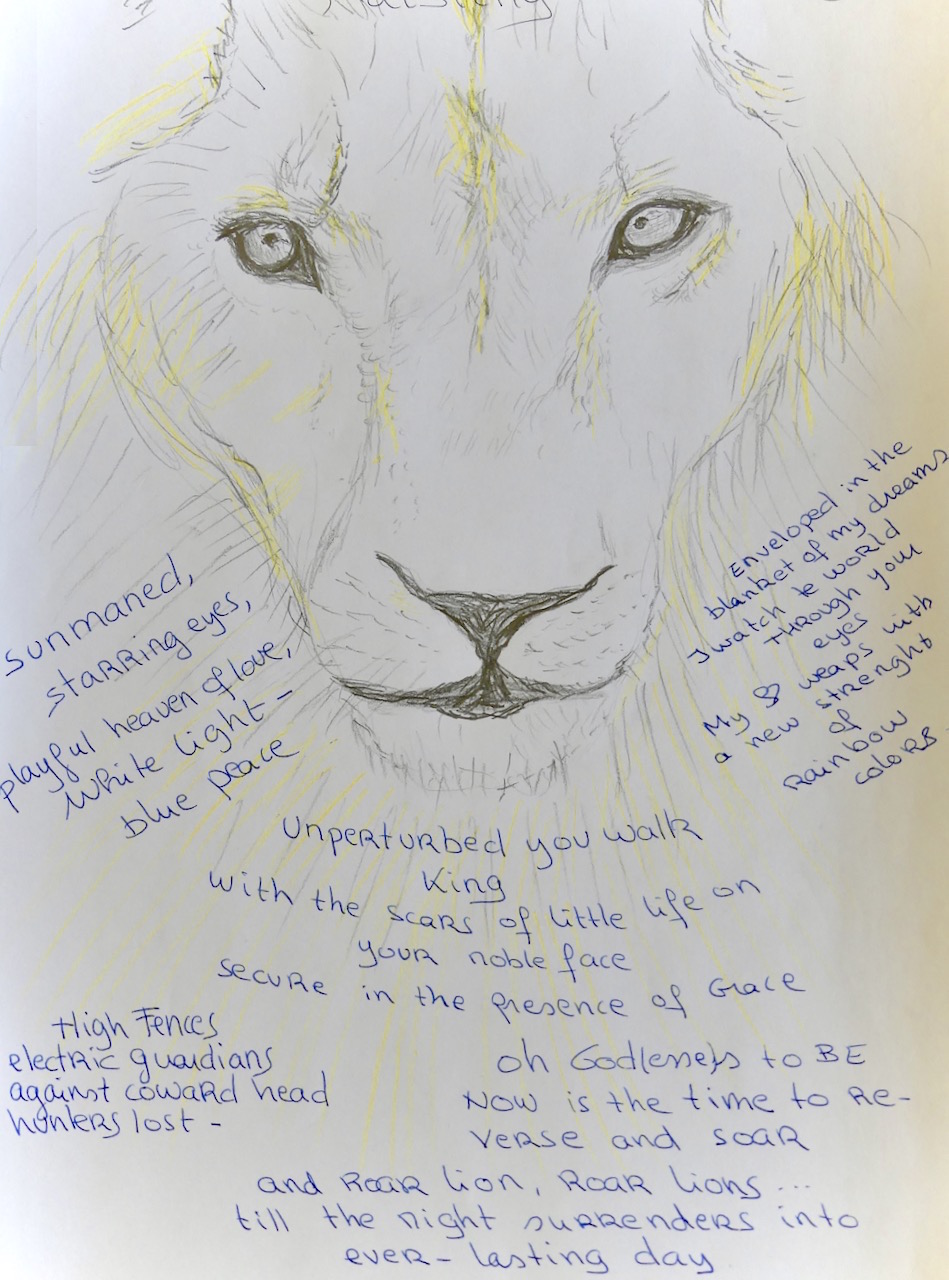 sunmaned,
starring eyes,
playful heaven of love,
white light -
blue peace
Enveloped in the
blanket of my dreams
I watch te world
THROUGH your
eyes
My weaps with
a new strenght
of
rainbow
colors
Unperturbed you walk
King
with the scars of little life on
your noble face
secure in the presence of Grace
High Fences
electric guardians
against coward head
hunters lost -
oh Godleness to BE
NOW is the time to RE-
VERSE and SOAR
and ROAR lion, ROAR lions ...
till the night surrenders into
ever-lasting day